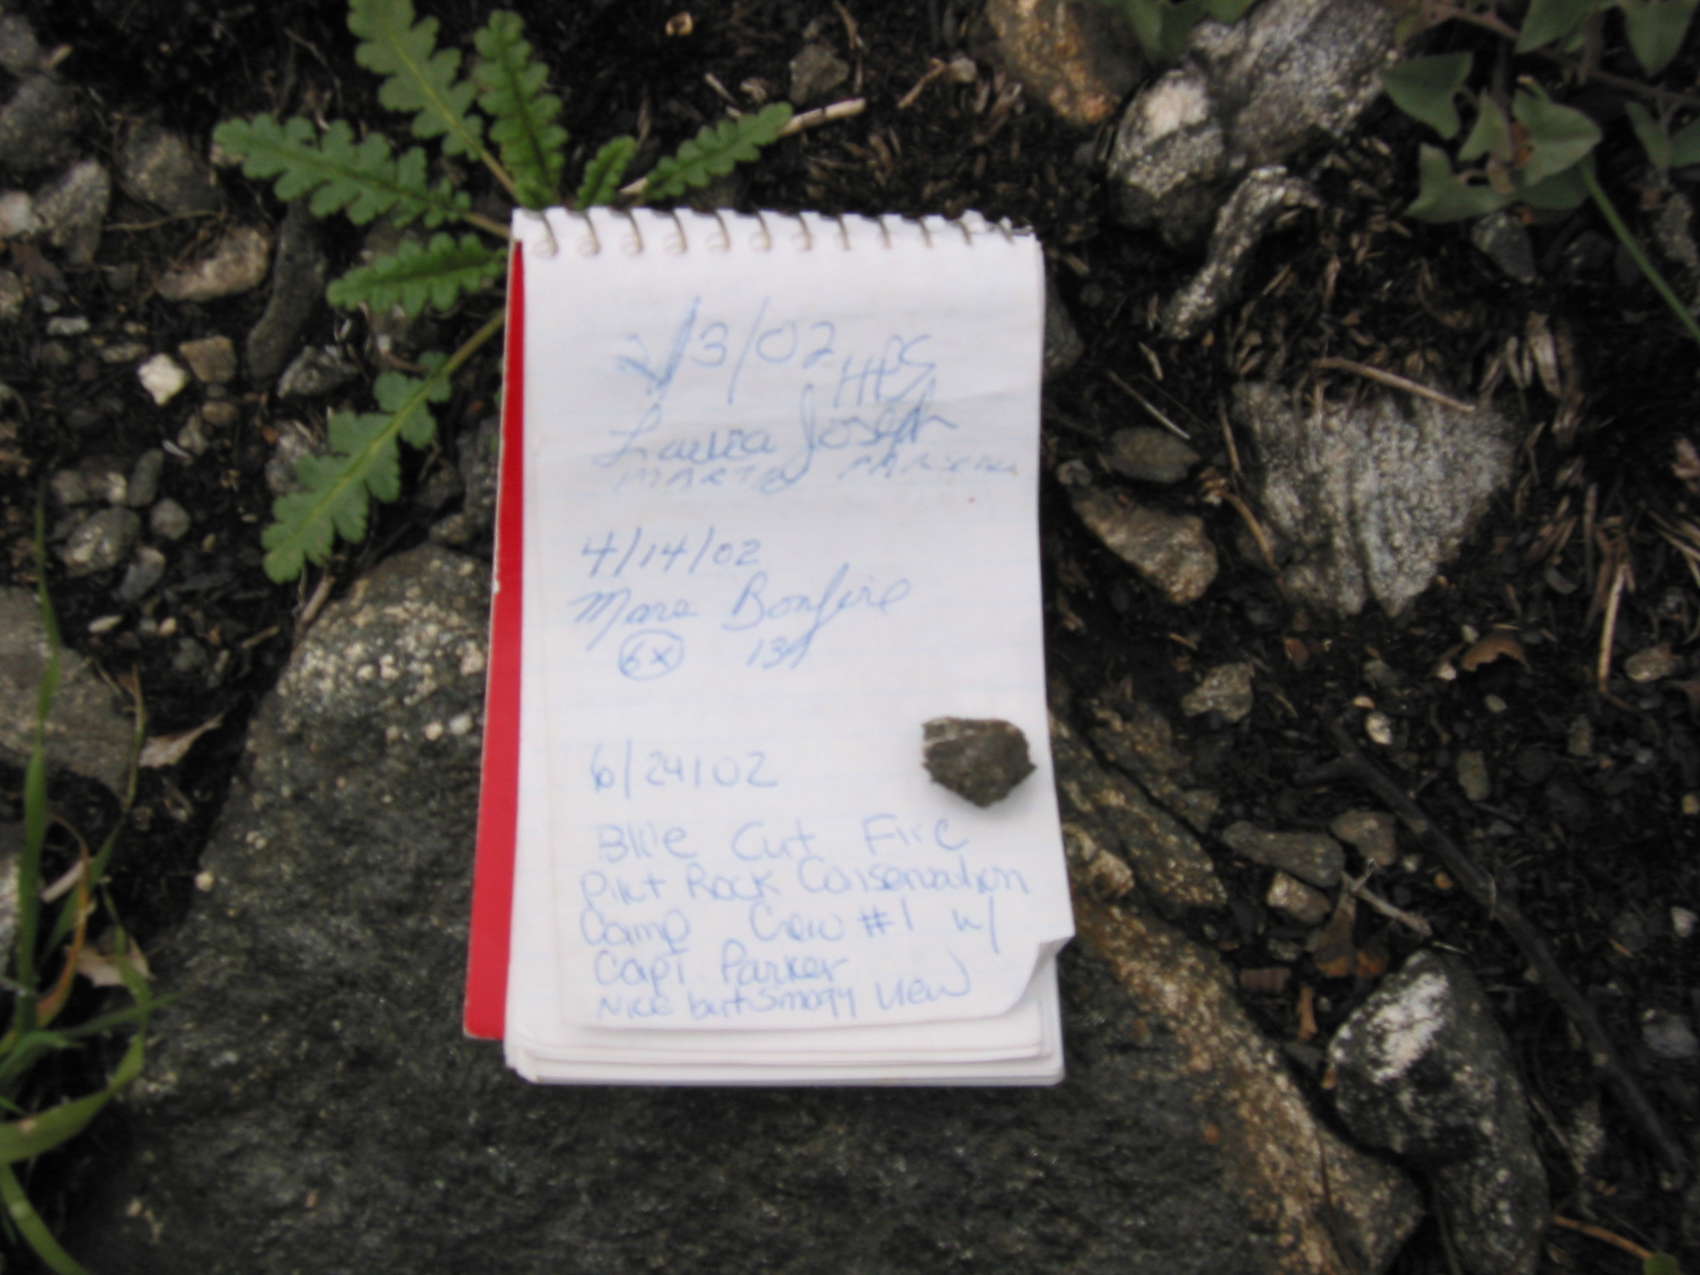 /3/02
HPS
Laura Joseph
4/14/02
Mars Bonfire
6x
6/24/02
Blue Cut Fire
Pilot Rock Conservation
Camp Crew #1 w/
Capt Parker
Nice but Smoggy View